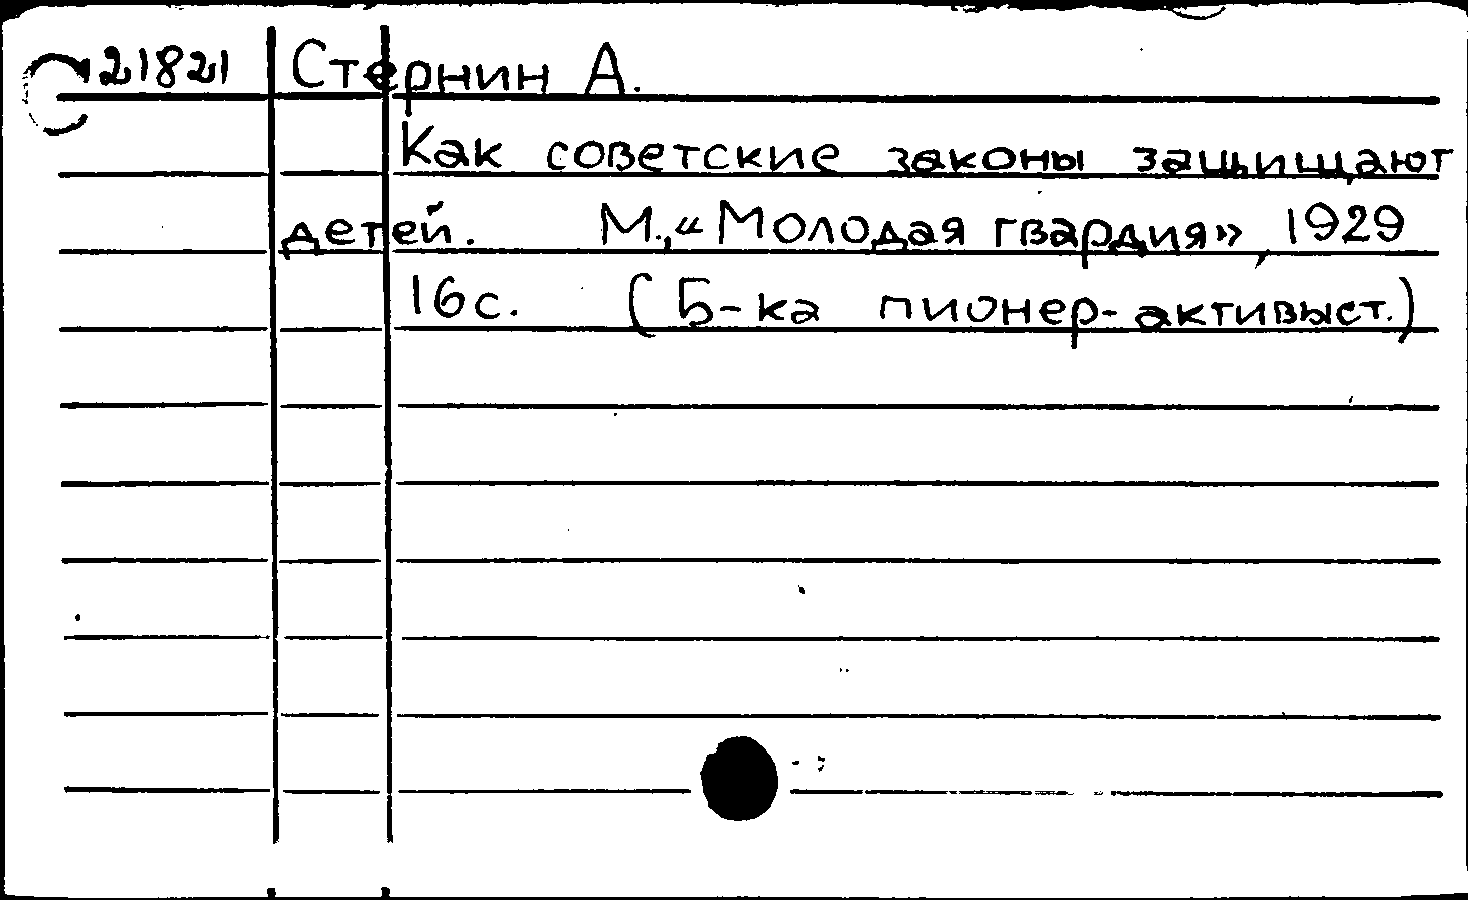 21821 Стернин А.
Как советские законы защищают
детей. М., «Молодая гвардия», 1929
16с. (Б-ка пионер-активыст.)